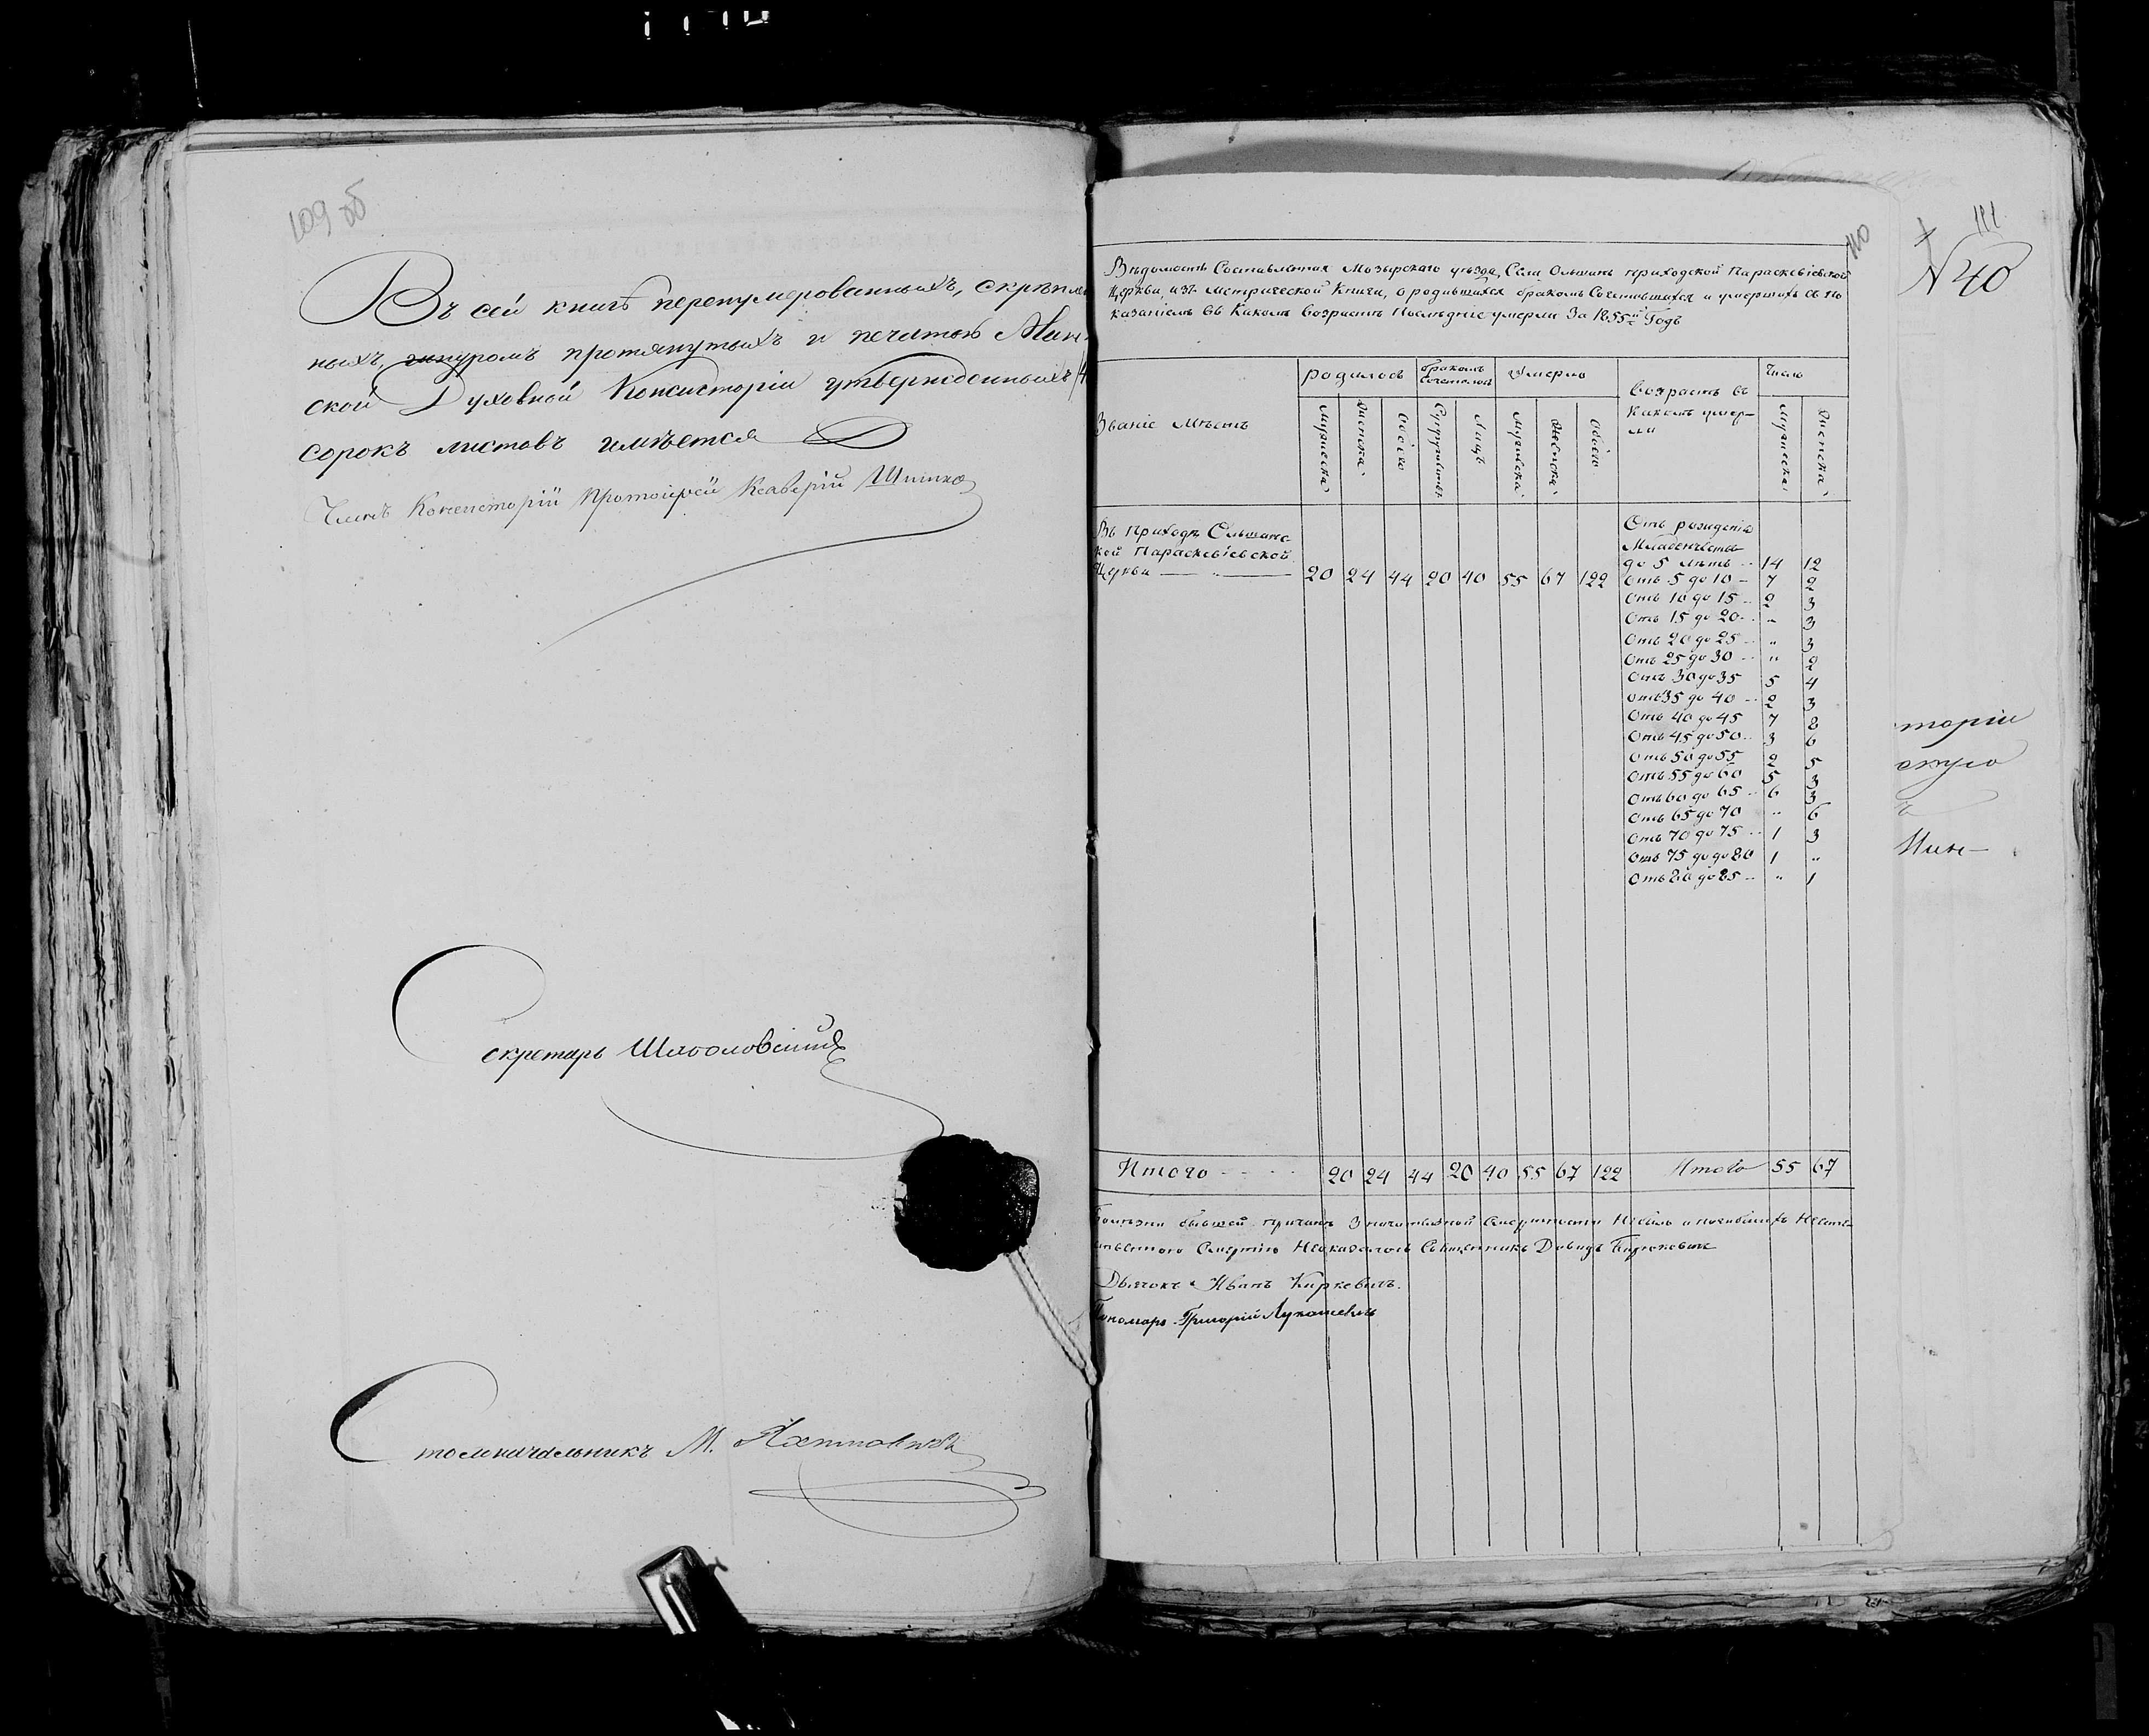 109 об
Въ сей книгѣ перенумерованныхъ, скрѣплен
ныхъ, шнуромъ протянутыхъ и печатью Мин
ской Духовной Консисторіи утвержденныхъ
сорокъ листовъ имѣется
Членъ Консисторіи Протоіерей Ксаверій
Секретарь
Столоначальникъ М.
110
Вѣдомость Составленная Мозырскаго уѣзда, Села Ольшанъ приходской Параскевіевской
Церкви, изъ метрической Книги, о родившихся бракомъ Сочетавшихся и умершихъ съ по
казаніемъ въ Какомъ возрастѣ Послѣдніе умерли За 1855й Годъ
Званіе Мѣстъ
родилось
бракомъ сочеталось
Умерло
возрастъ въ Какомъ умер-ли
Число
Мужеска
Женска
Обоего
Супружествъ
Лицъ
Мужеска
Женска
Обоего
Мужеска
Женска
Въ приходѣ Ольшанс
кой Параскевіевской
Церкви 20 24 44 20 40 55 67 122
Отъ рожденія
Младенчества
до 5 лѣтъ 14 12
Отъ 5 до 10 7 2
Отъ 10 до 15 2 3
Отъ 15 до 20 " 3
Отъ 20 до 25 " 3
Отъ 25 до 30 " 2
Отъ 30 до 35 5 4
Отъ 35 до 40 2 3
Отъ 40 до 45 7 8
Отъ 45 до 50 3 6
Отъ 50 до 55 2 5
Отъ 55 до 60 5 3
Отъ 60 до 65 6 3
Отъ 65 до 70 " 6
Отъ 70 до 75 1 3
Отъ 75 до до 80 1 "
Отъ 80 до 85 " 1
Итого 20 24 44 20 40 55 67 122 Итого 55 67
Болѣзни бывшей причинѣ Значительной Смертности Небыло и погибшихъ Неест
ественною Смертію Неоказалось Священникъ Давидъ Бируковичъ
Дьячокъ Иванъ Киркевичъ.
Пономарь Григорій Лукашевичъ
111
№ 40
торіи
скую
Мин-